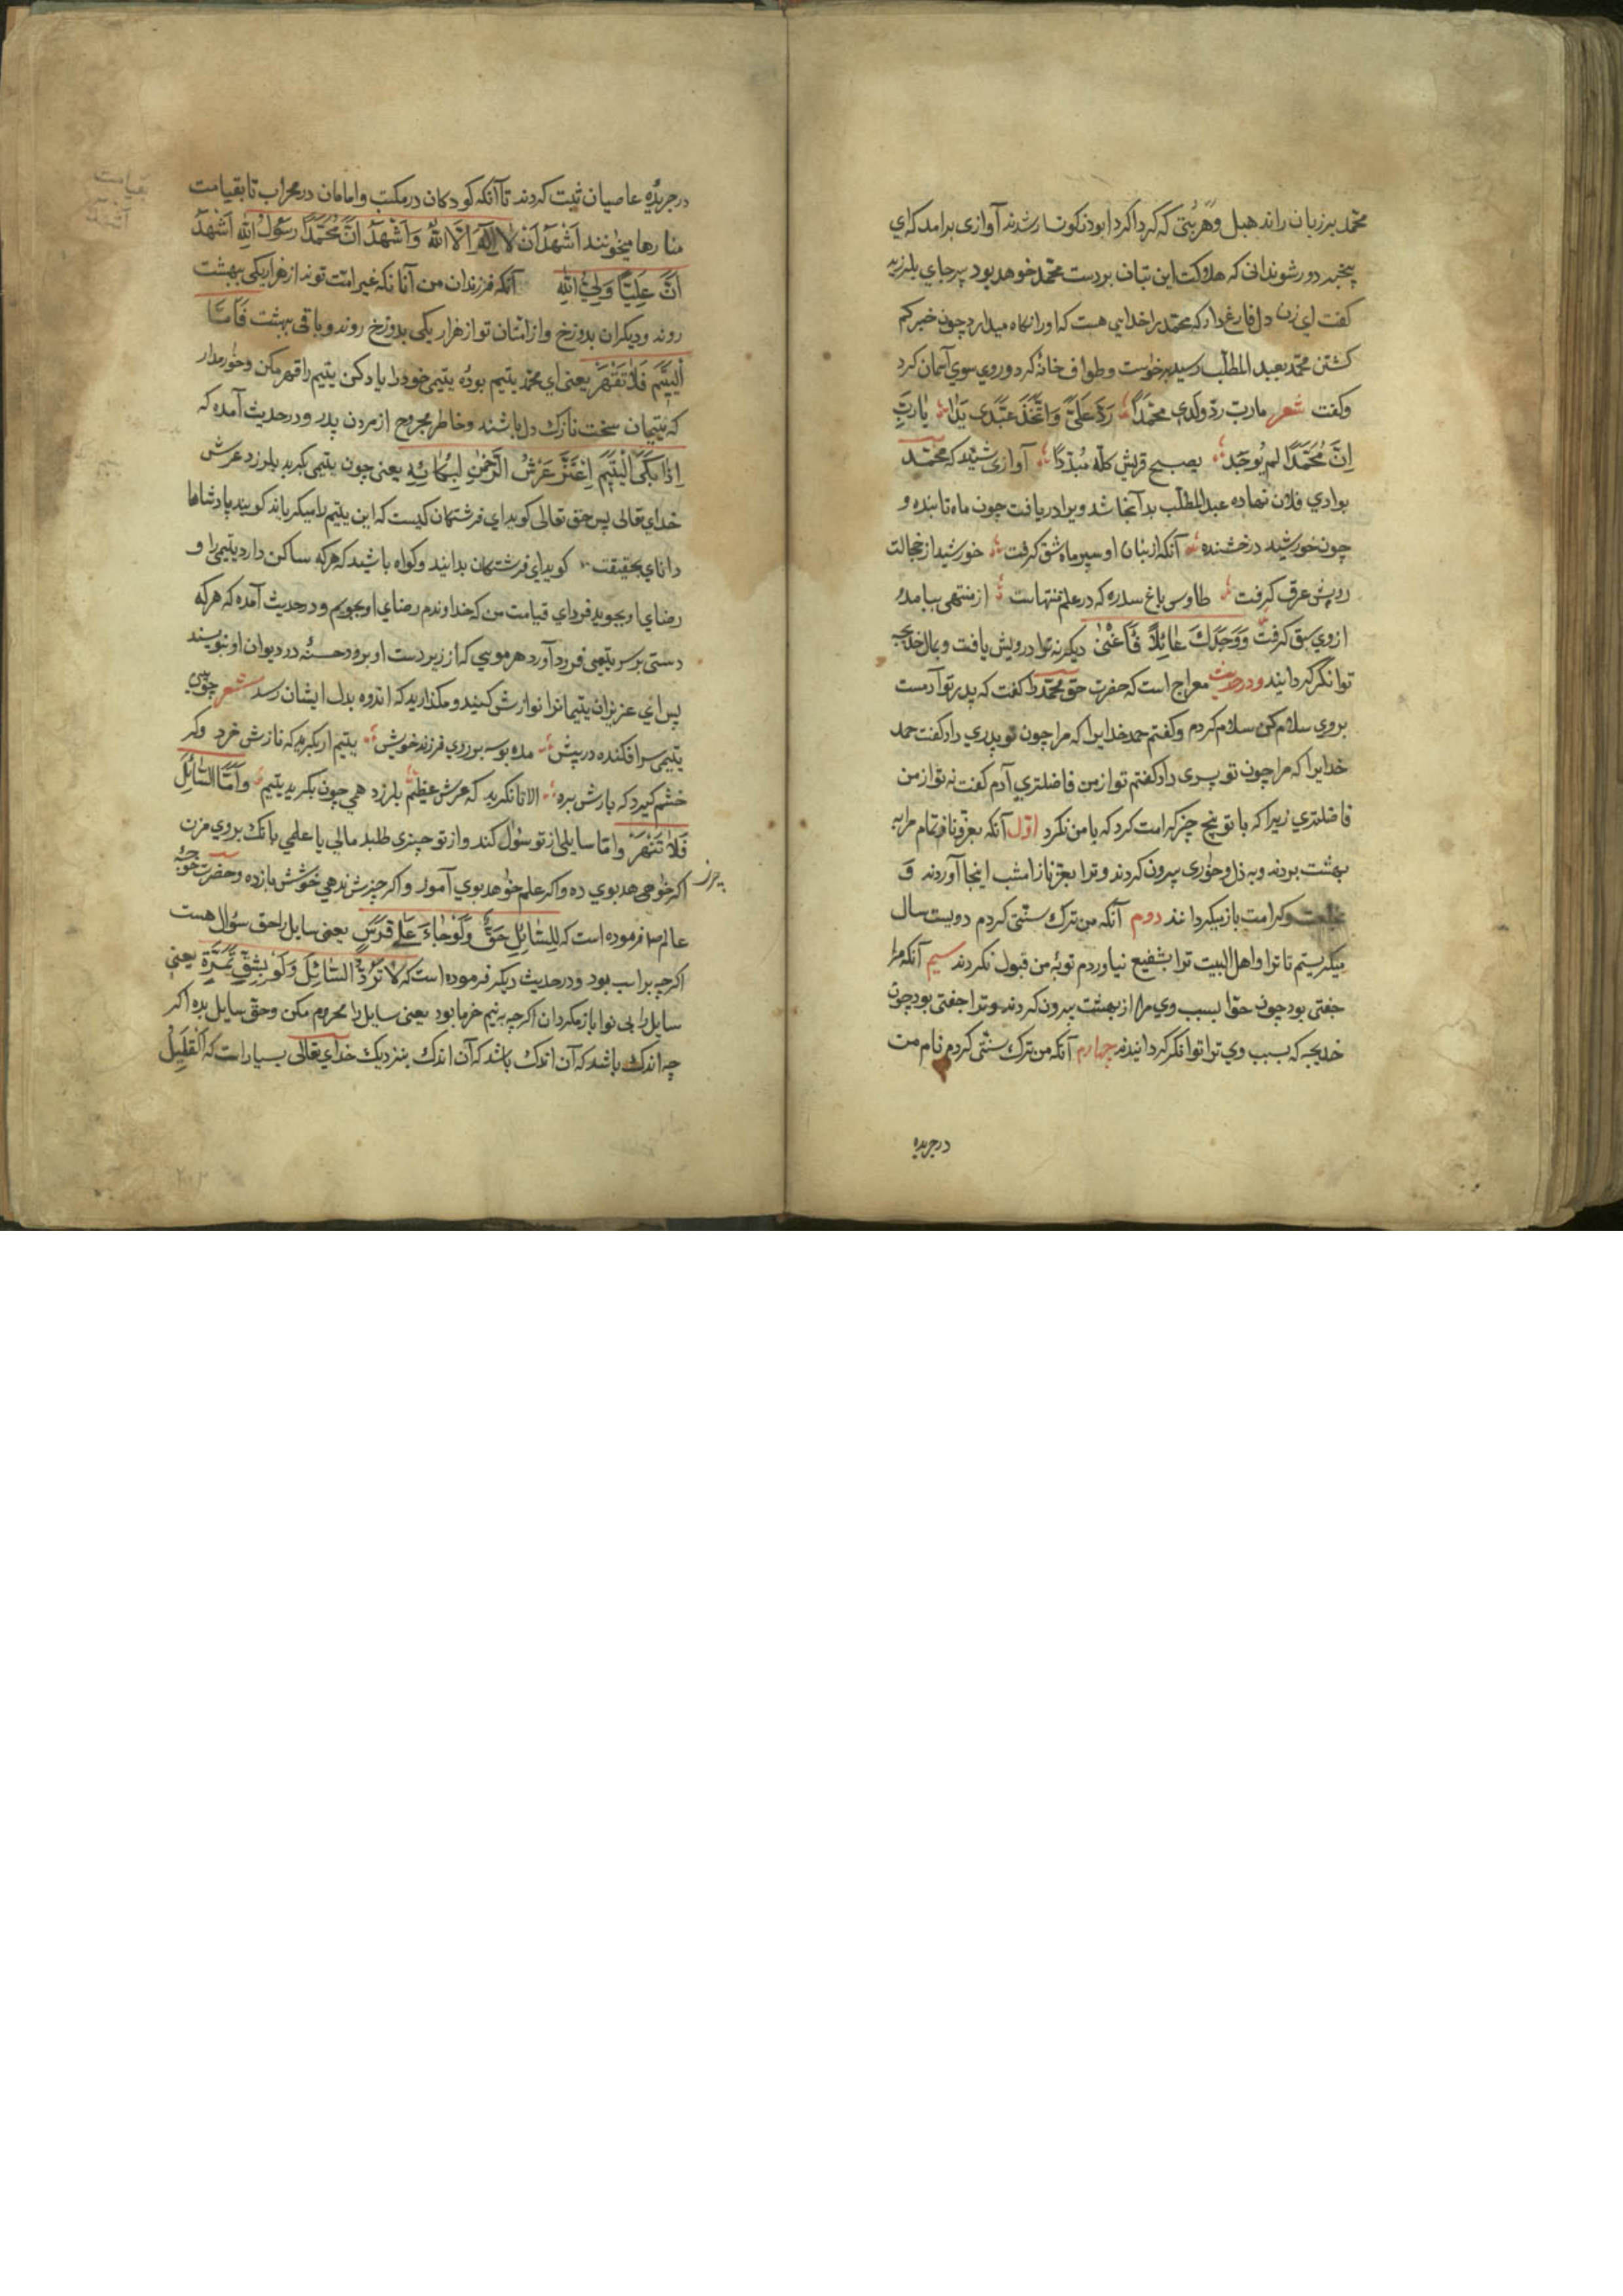 محمد بر زبان راند هبل و هر بتی که گرداگرد او بود نکونسار شدند آوازی برامد که ای
پیر دور شو ندانی که هلاکت این بتان بر دست محمد خواهد بود پیر جای بلرزید
کفت ای زن دل فارغ دار که محمد را خدایی هست که او را نکاه میدارد چون خبر کم
کشتن محمد بعبد المطلب رسید برخواست و طواف خانه کرد و روی سوی آسمان کرد
و کفت شعر یارب ردّ ولدی محمداً رده علیّ واتّخذ عندی یدا یا ربّ
اِنّ محمداً لم یوجد یصبح قریش کله مبددا آوازی شنید که محمد
بوادی فلان نهاده عبدالمطلب بدآنجا شد ویرا دریافت چون ماه تابنده و
چون خورشید درخشنده آنکه از بنان او سپر ماه شق کرفت خورشید از خجالت
رویش عرق کرفت طاوس باغ سدره که در علم منتهاست از منتهی بیامد و
از وی سبق کرفت وَوَجَدَكَ عَائِلاً فَاَغْنیٰ دیکر نه ترا درویش یافت و بمال خدیجه
توانکر کردانید و در حدیث معراج است که حضرت حق محمد را کفت که پدر تو آدمست
بروی سلام کن سلام کردم و کفتم حمد خدایرا که مرا چون تو پدری داد کفت حمد
خدایرا که مرا چون تو پسری داد کفتم تو از من فاضلتری آدم کفت نه تو از من
فاضلتری زیرا که با تو پنج چیز کرامت کرد که با من نکرد اوّل آنکه بعز و ناز تمام مرا به
بهشت بردند و به ذل و خواری بیرون کردند و ترا بعز و ناز امشب اینجا آوردند و
بخلعت و کرامت باز میکردانند دوم آنکه من ترک سنّتی کردم دویست سال
میکریستم تا ترا و اهل البیت ترا بشفیع نیاوردم توبهٔ من قبول نکردند سیم آنکه مرا
جفتی بود چون حوّا بسبب وی مرا از بهشت بیرون کردند و ترا جفتی بود چون
خدیجه که بسبب وی ترا توانکر کردانیدند چهارم آنکه من ترک سنّتی کردم نام من
در جریده
در جریدهٔ عاصیان ثبت کردند تا آنکه کودکان در مکتب و امامان در محراب تا بقیامت
منارها میخوانند اَشْهَدُ اَنْ لا اِلٰهَ اِلَّا اللّٰه وَ اَشْهَدُ اَنَّ مُحَمَّدًا رَسُولُ اللّٰهِ اَشْهَدُ
اَنَّ عَلِیًّا وَلِیُّ اللّٰهِ آنکه فرزندان من آنانکه غیر امّت توند از هزار یکی بهشت
روند و دیکران بدوزخ و از امّتان تو از هزار یکی بدوزخ روند و باقی بهشت فَاَمّا
الْیَتِیمَ فَلَا تَقْهَرْ یعنی ای محمد یتیم بودهٔ یتیمی خود را یاد کن یتیم را قهر مکن و خوار مدار
که یتیمان سخت نازک دل باشند و خاطر مجروح از مردن پدر و در حدیث آمده که
اِذَا بَکَی الْیَتِیمُ اهْتَزَّ عَرْشُ الرَّحْمٰنِ لِبُکَائِهِ یعنی چون یتیمی بکرید بلرزد عرش
خدای تعالی پس حق تعالی کوید ای فرشتکان کیست که این یتیم را میکریاند کویند پادشاها
دانای بحقیقت کوید ای فرشتکان بدانید و کواه باشید که هرکه ساکن دارد یتیمی را و
رضای او بجوید فردای قیامت من که خداوندم رضای او بجویم و در حدیث آمده که هرکه
دستی بر سر یتیمی فرود آورد هر مویی که از زیر دست او برود حسنهٔ در دیوان او بنویسند
پس ای عزیزان یتیمانرا نوازش کنید و مکذارید که اندوه بدل ایشان رسد شعر چو بینی
یتیمی سرافکنده در پیش مده بوسه بر روی فرزند خویش یتیم ار بکرید که نازش خرد وکر
خشم کیرد که بارش برد الا تا نکرید که عرش عظیم بلرزد همی چون بکرید یتیم وَاَمَّا السَّائِلَ
فَلَا تَنْهَرْ و امّا سایلی از تو سؤال کند و از تو چیزی طلبد مالی یا علمی بانک بروی مزن
اکر خواهی هد بوی ده و اکر علم خواهد بوی آموز و اکر چیزش ندهی خوشش باز ده و حضرت خواجه
عالم فرموده است که لِلسَّائِلِ حَقٌّ وَلَوْ جَاءَ عَلیٰ فَرَسٍ یعنی سایل را حق سؤال هست
اکرچه بر اسب بود و در حدیث دیکر فرموده است که لا تَرُدُّ السَّائِلَ وَلَوْ بِشِقِّ تَمْرَةٍ یعنی
سایل را بی نوا باز مکردان اکرچه به نیم خرما بود یعنی سایل را محروم مکن و حق سایل بده اکر
چه اندک باشد که آن اندک باشد که آن اندک بنزدیک خدای تعالی بسیار است که اَلْقَلِیلُ